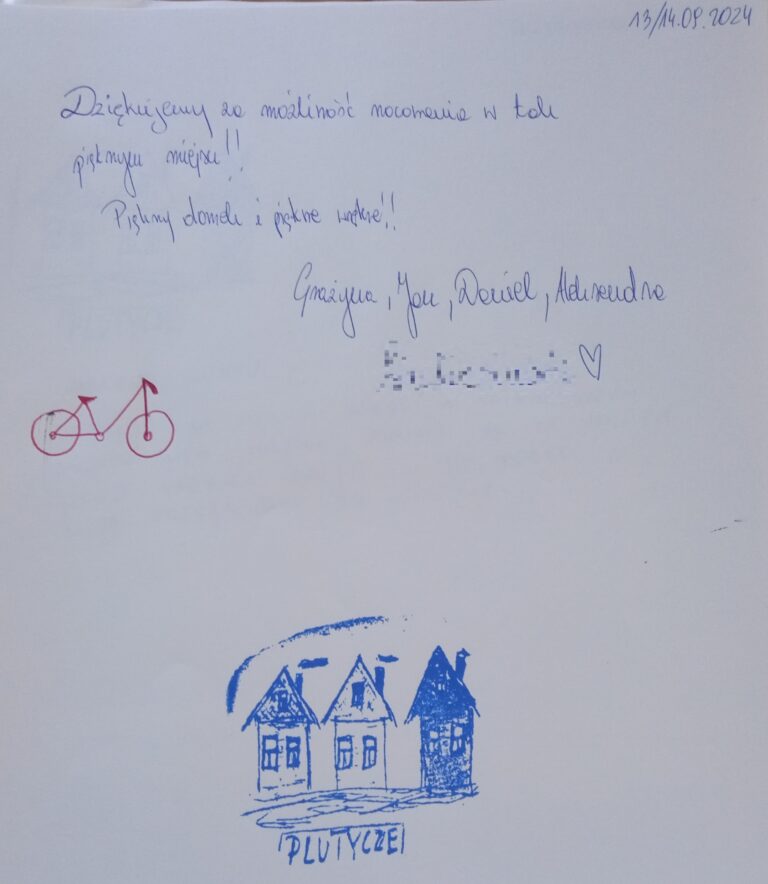 13/14.09.2024
Dziękujemy za możliwość nocowania w tak
pięknym miejscu!!
Piękny domek i piękne wnętrze!!
Grażyna, Jan, Daniel, Aleksandra
PLUTYCZE